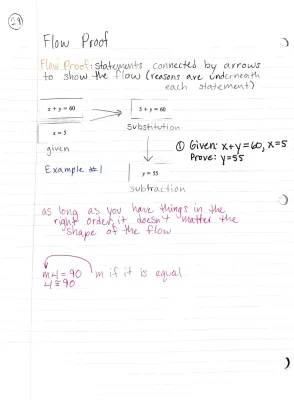 29
Flow Proof
Flow Proof: statements connected by arrows
to show the flow (reasons are underneath
each statement)
x + y = 60
5 + y = 60
x = 5
substitution
given
① Given: x+y=60, x=5
Prove: y=55
Example #1
y = 55
subtraction
as long as you have things in the
right order, it doesn't matter the
shape of the flow
m∠ = 90 m if it is equal
∠ ≅ 90